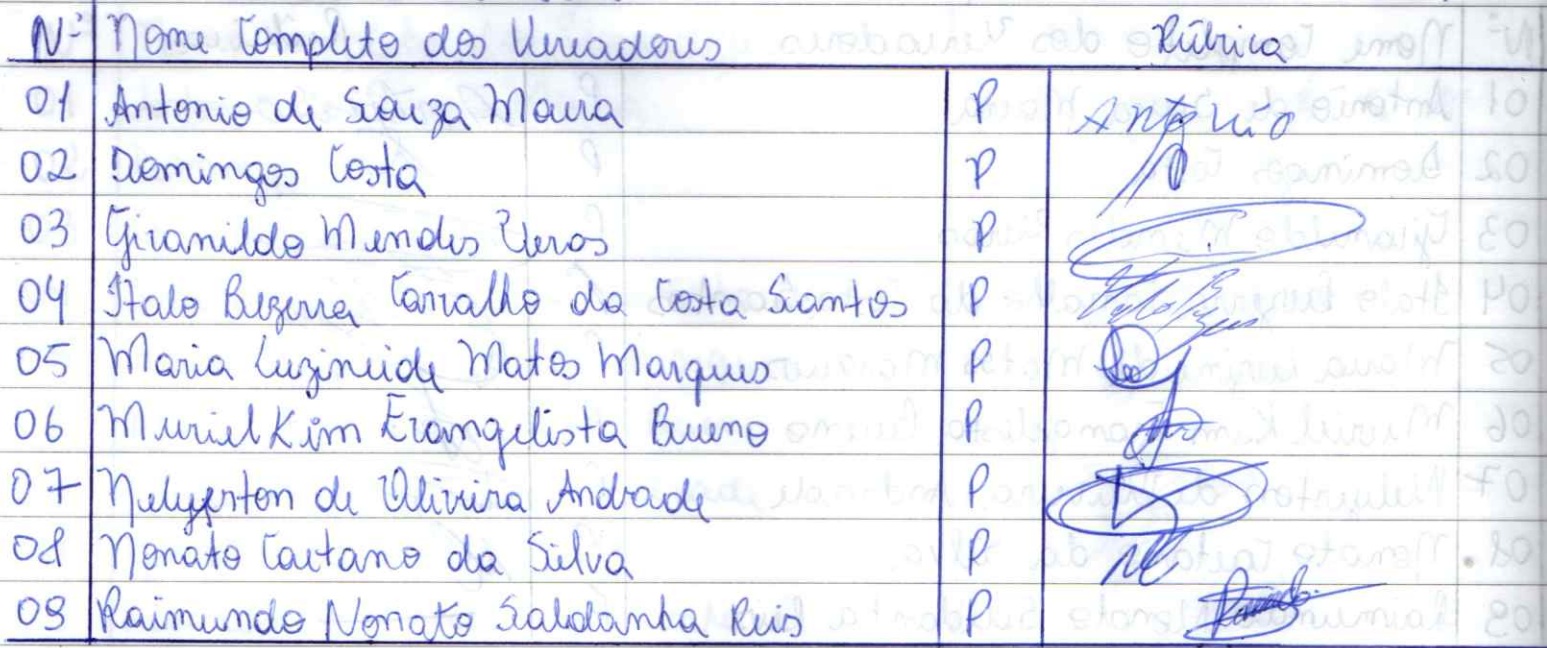 Nº Nome Completo dos Vereadores Rúbrica
01 Antonio de Souza Moura P Antonio
02 Domingos Costa P
03 Giranildo Mendes P
04 Italo Bezerra Carvalho da Costa Santos P
05 Maria Luzineide Matos Marques P
06 Muriel Kim Evangelista Bueno P
07 de Oliveira Andrade P
08 Nonato Caetano da Silva P
09 Raimundo Nonato Saldanha Reis P